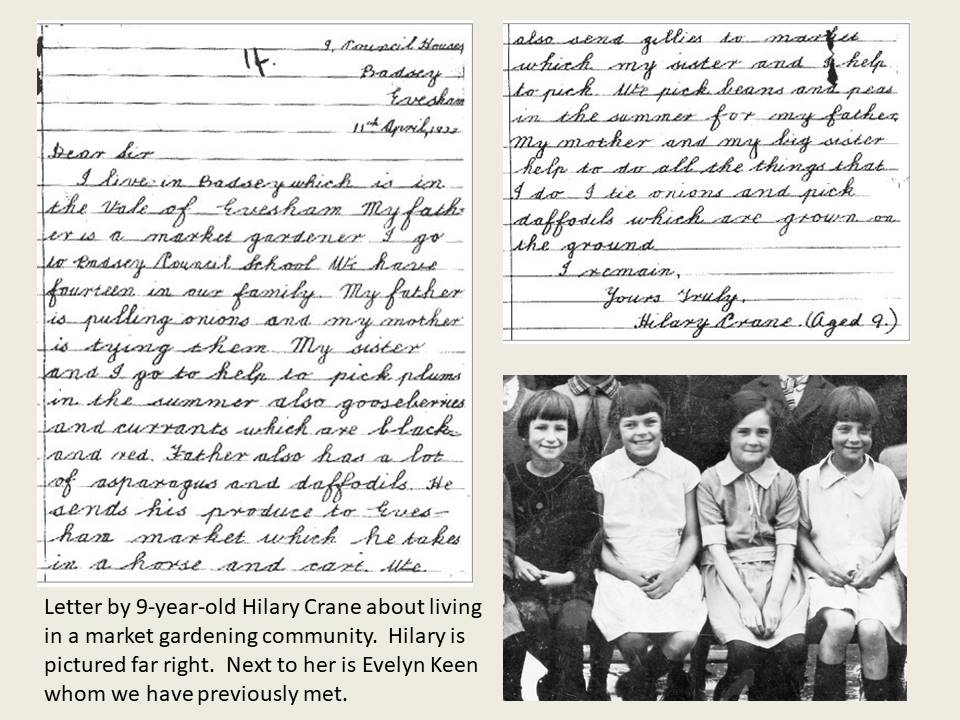 14.
1, Council Houses
Badsey
Evesham
11th April, 1932
Dear Sir
I live in Badsey which is in
the Vale of Evesham My fath-
er is a market gardener I go
to Badsey Council School We have
fourteen in our family. My father
is pulling onions and my mother
is tying them My sister
and I go to help to pick plums
in the summer also gooseberries
and currants which are black
and red. Father also has a lot
of asparagus and daffodils. He
sends his produce to Eves-
ham market which he takes
in a horse and cart. We
also send gillies to market
which my sister and I help
to pick We pick beans and peas
in the summer for my father,
My mother and my big sister
help to do all the things that
I do I tie onions and pick
daffodils which are grown on
the ground
I remain,
Yours Truly.
Hilary Crane. (Aged 9.)
Letter by 9-year-old Hilary Crane about living
in a market gardening community. Hilary is
pictured far right. Next to her is Evelyn Keen
whom we have previously met.